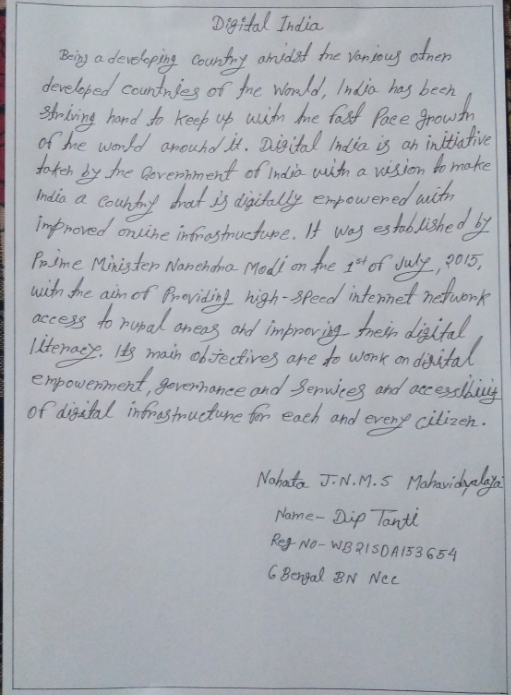 Digital India
Being a developing country amidst the various other
developed countries of the World, India has been
striving hard to keep up with the fast Pace growth
of the world around it. Digital India is an initiative
taken by the Government of India with a vision to make
India a country that is digitally empowered with
improved online infrastructure. It was established by
Prime Minister Narendra Modi on the 1st of July, 2015,
with the aim of Providing high-speed internet network
access to rural areas and improving their digital
literacy. Its main objectives are to work on digital
empowerment, governance and Services and accessibility
of digital infrastructure for each and every citizen.
Nahata J.N.M.S Mahavidyalaya
Name- Dip Tanti
Reg No- WB21SDA153654
6 Bengal BN Ncc